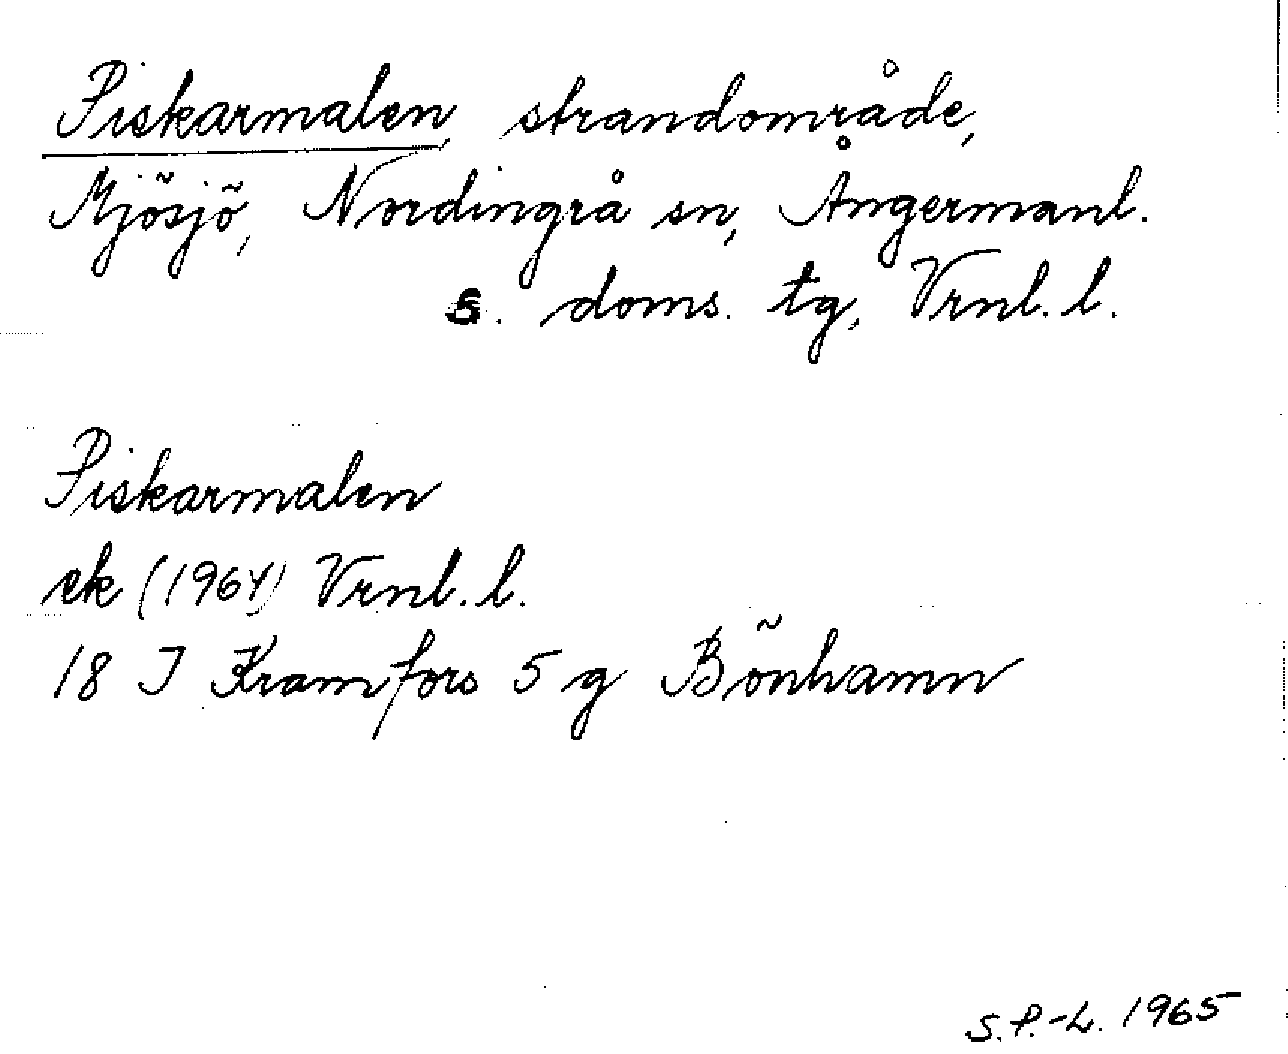 Piskarmalen, strandområde,
Mjösjö, Nordingrå sn, Ångermanl.
s. doms. tg, Vrnl. l.
Piskarmalen
ek (1964) Vrnl. l.
18 I Kramfors 5 g Bönhamn
S.P.-L. 1965